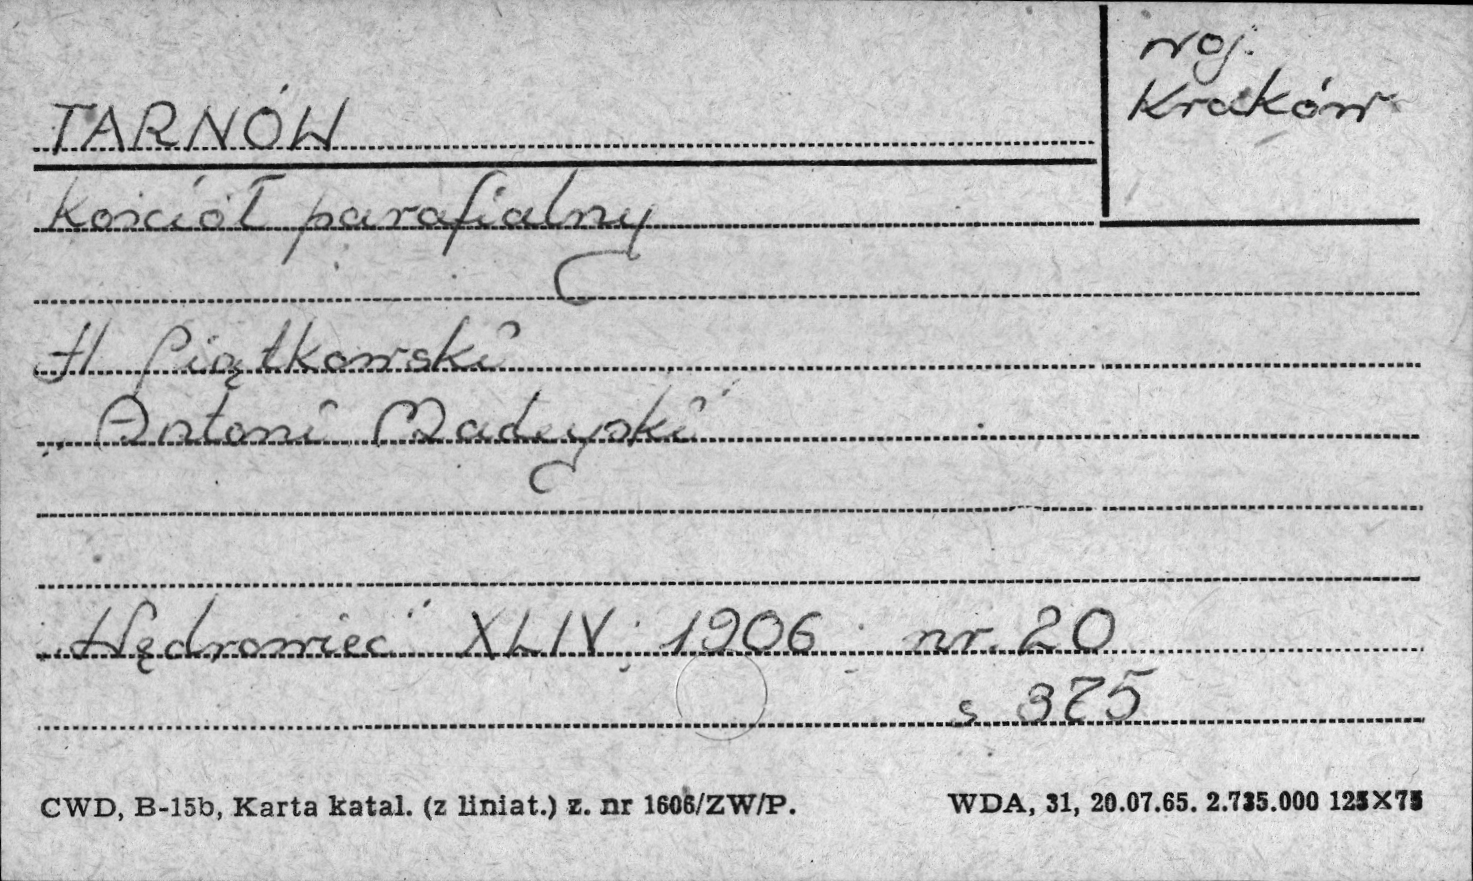 woj.
Kraków
TARNÓW
kościół parafialny
H Piątkowski
„Antoni Madeyski”
„Wędrowiec” XLIV; 1906; nr. 20
s 375
CWD, B-15b, Karta katal. (z liniat.) z. nr 1606/ZW/P.
WDA, 31, 20.07.65. 2.735.000 125X75